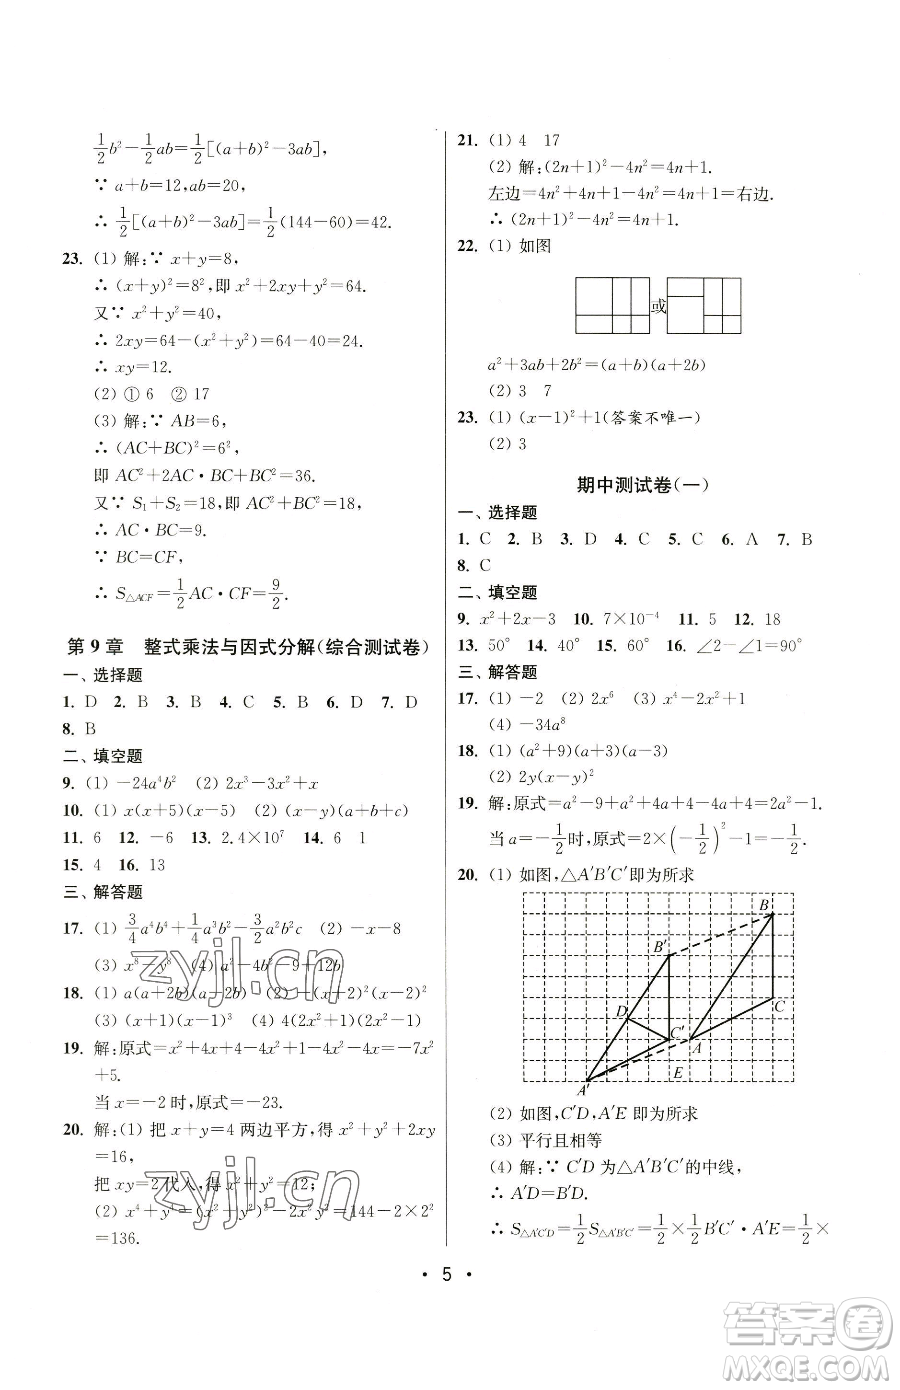 ½b²-½ab=½[(a+b)²-3ab],
∵ a+b=12,ab=20,
∴ ½[(a+b)²-3ab]=½(144-60)=42.
23. (1) 解:∵ x+y=8,
∴ (x+y)²=8²,即 x²+2xy+y²=64.
又∵ x²+y²=40,
∴ 2xy=64-(x²+y²)=64-40=24.
∴ xy=12.
(2) ① 6 ② 17
(3) 解:∵ AB=6,
∴ (AC+BC)²=6²,
即 AC²+2AC·BC+BC²=36.
又∵ S₁+S₂=18,即 AC²+BC²=18,
∴ AC·BC=9.
∵ BC=CF,
∴ S△ACF=½AC·CF=9/2.
第 9 章 整式乘法与因式分解(综合测试卷)
一、选择题
1. D 2. B 3. B 4. C 5. B 6. D 7. D
8. B
二、填空题
9. (1) -24a⁴b² (2) 2x³-3x²+x
10. (1) x(x+5)(x-5) (2) (x-y)(a+b+c)
11. 6 12. -6 13. 2.4×10⁷ 14. 6 1
15. 4 16. 13
三、解答题
17. (1) ¾a⁴b⁴+¼a³b²-3/2a²b²c (2) -x-8
(3) x⁸-y⁸ (4) a²-4b²-9+12b
18. (1) a(a+2b)(a-2b) (2) -(x+2)²(x-2)²
(3) (x+1)(x-1)³ (4) 4(2x+1)(x-2)
19. 解:原式=x²+4x+4-4x²+1-4x²=-7x²
+5.
当 x=-2 时,原式=-23.
20. 解:(1) 把 x+y=4 两边平方,得 x²+y²+2xy
=16,
把 xy=2 代入,得 x²+y²=12;
(2) x⁴+y⁴=(x²+y²)²-2x²y²=144-2×2²
=136.
21. (1) 4 17
(2) 解:(2n+1)²-4n²=4n+1.
左边=4n²+4n+1-4n²=4n+1=右边.
∴ (2n+1)²-4n²=4n+1.
22. (1) 如图
或
a²+3ab+2b²=(a+b)(a+2b)
(2) 3 7
23. (1) (x-1)²+1(答案不唯一)
(2) 3
期中测试卷(一)
一、选择题
1. C 2. B 3. D 4. C 5. C 6. A 7. B
8. C
二、填空题
9. x²+2x-3 10. 7×10⁻⁴ 11. 5 12. 18
13. 50° 14. 50° 15. 60° 16. ∠2-∠1=∠A
三、解答题
17. (1) -2 (2) 2x⁶ (3) x⁴-2x²+1
(4) -34a⁸
18. (1) (a²+9)(a+3)(a-3)
(2) 2y(x-y)²
19. 解:原式=a²-9+a²+4a+4-4a+4=2a²-1.
当 a=-½时,原式=2×(-½)²-1=-½.
20. (1) 如图,△A′B′C′即为所求
B
B′
D
C′
A
C
A′
E
(2) 如图,C′D,A′E 即为所求
(3) 平行且相等
(4) 解:∵ C′D 为△A′B′C′的中线,
∴ A′D=B′D.
∴ S△A′C′D=½S△A′B′C′=½×½B′C′·A′E=½×
· 5 ·
zyjl.cn
zyjl.cn
答案圈
MXQE.COM